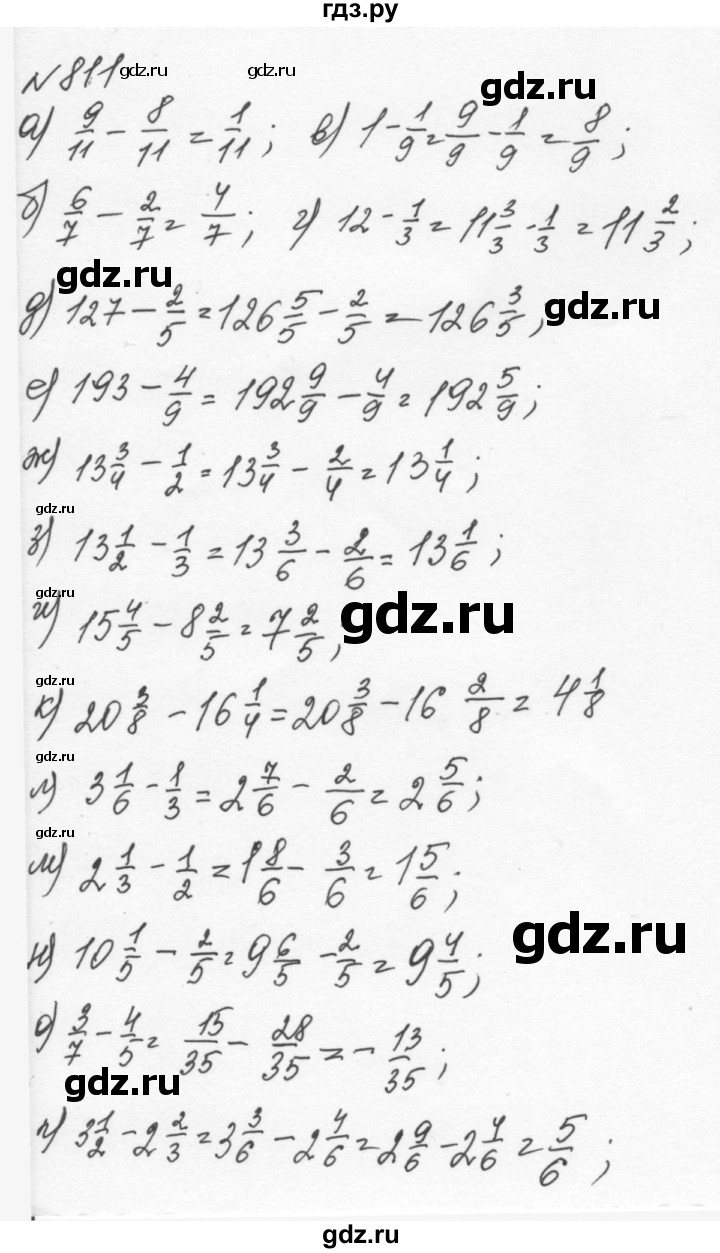 гдз.ру
№811 gdz.ru gdz.ru gdz.ru
а) 9/11 - 8/11 = 1/11; в) 1 - 1/9 = 9/9 - 1/9 = 8/9;
б) 6/7 - 2/7 = 4/7; г) 12 - 1/3 = 11 3/3 - 1/3 = 11 2/3;
gdz.ru gdz.ru
д) 127 - 2/5 = 126 5/5 - 2/5 = 126 3/5;
е) 193 - 4/9 = 192 9/9 - 4/9 = 192 5/9;
ж) 13 3/4 - 1/2 = 13 3/4 - 2/4 = 13 1/4;
gdz.ru
з) 13 1/2 - 1/3 = 13 3/6 - 2/6 = 13 1/6;
gdz.ru gdz.ru
и) 15 4/5 - 8 2/5 = 7 2/5;
gdz.ru
к) 20 3/8 - 16 1/4 = 20 3/8 - 16 2/8 = 4 1/8
gdz.ru
л) 3 1/6 - 1/3 = 2 7/6 - 2/6 = 2 5/6;
gdz.ru
м) 2 1/3 - 1/2 = 1 8/6 - 3/6 = 1 5/6;
gdz.ru
н) 10 1/5 - 2/5 = 9 6/5 - 2/5 = 9 4/5;
о) 3/7 - 4/5 = 15/35 - 28/35 = - 13/35;
gdz.ru
п) 3 1/2 - 2 2/3 = 3 3/6 - 2 4/6 = 2 9/6 - 2 4/6 = 5/6;
gdz.ru